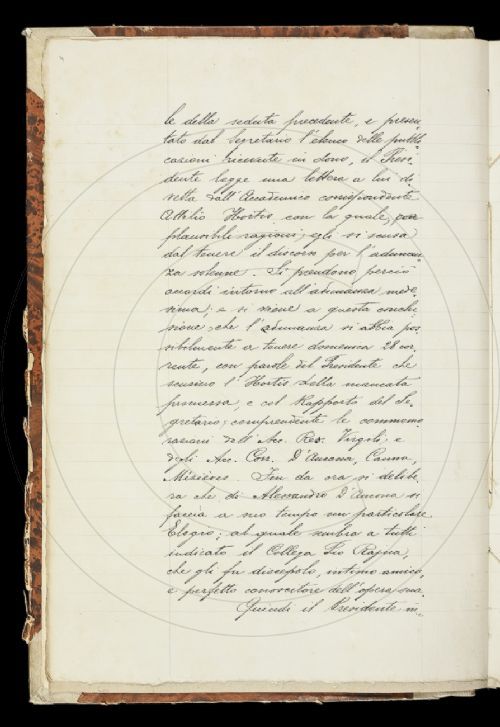 le della seduta precedente, e presen-
tato dal Segretario l'elenco delle pubbli-
cazioni ricevute in dono, il Presi-
dente legge una lettera a lui di-
retta dall'Accademico corrispondente
Attilio Hortis, con la quale, per
plausibili ragioni, egli si scusa
dal tenere il discorso per l'adunan-
za solenne. Si prendono perciò
accordi intorno all'adunanza mede-
sima, e si viene a questa conclu-
sione, che l'adunanza si abbia pos-
sibilmente a tenere domenica 28 cor-
rente, con parole del Presidente che
scusino l'Hortis della mancata
promessa, e col Rapporto del Se-
gretario, comprendente le commemo-
razioni dell'Acc. Res. Virgili, e
degli Acc. Corr. D'Ancona, Canna,
Fin da ora si delibe-
ra che di Alessandro D'Ancona si
faccia a suo tempo un particolare
Elogio; al quale sembra a tutti
indicato il Collega Pio Rajna,
che gli fu discepolo, intimo amico,
e perfetto conoscitore dell'opera sua.
Quindi il Presidente in-